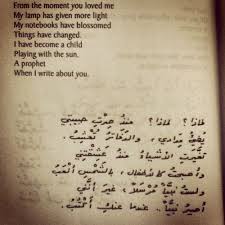 From the moment you loved me
My lamp has given more light
My notebooks have blossomed
Things have changed.
I have become a child
Playing with the sun.
A prophet
When I write about you.
لماذا ؟ لماذا ؟ منذ صرتِ حبيبتي
يضيءُ مدادي ، والدفاترُ تُعشِبُ
تغيَّرت الأشياءُ منذُ عشقتِني
وأصبحتُ كالأطفال ، بالشمس ألعبُ
ولستُ نبيًّا مُرسَلًا ، غير أنَّني
أصيرُ نبيًّا .. عندما عنكِ أكتبُ ..